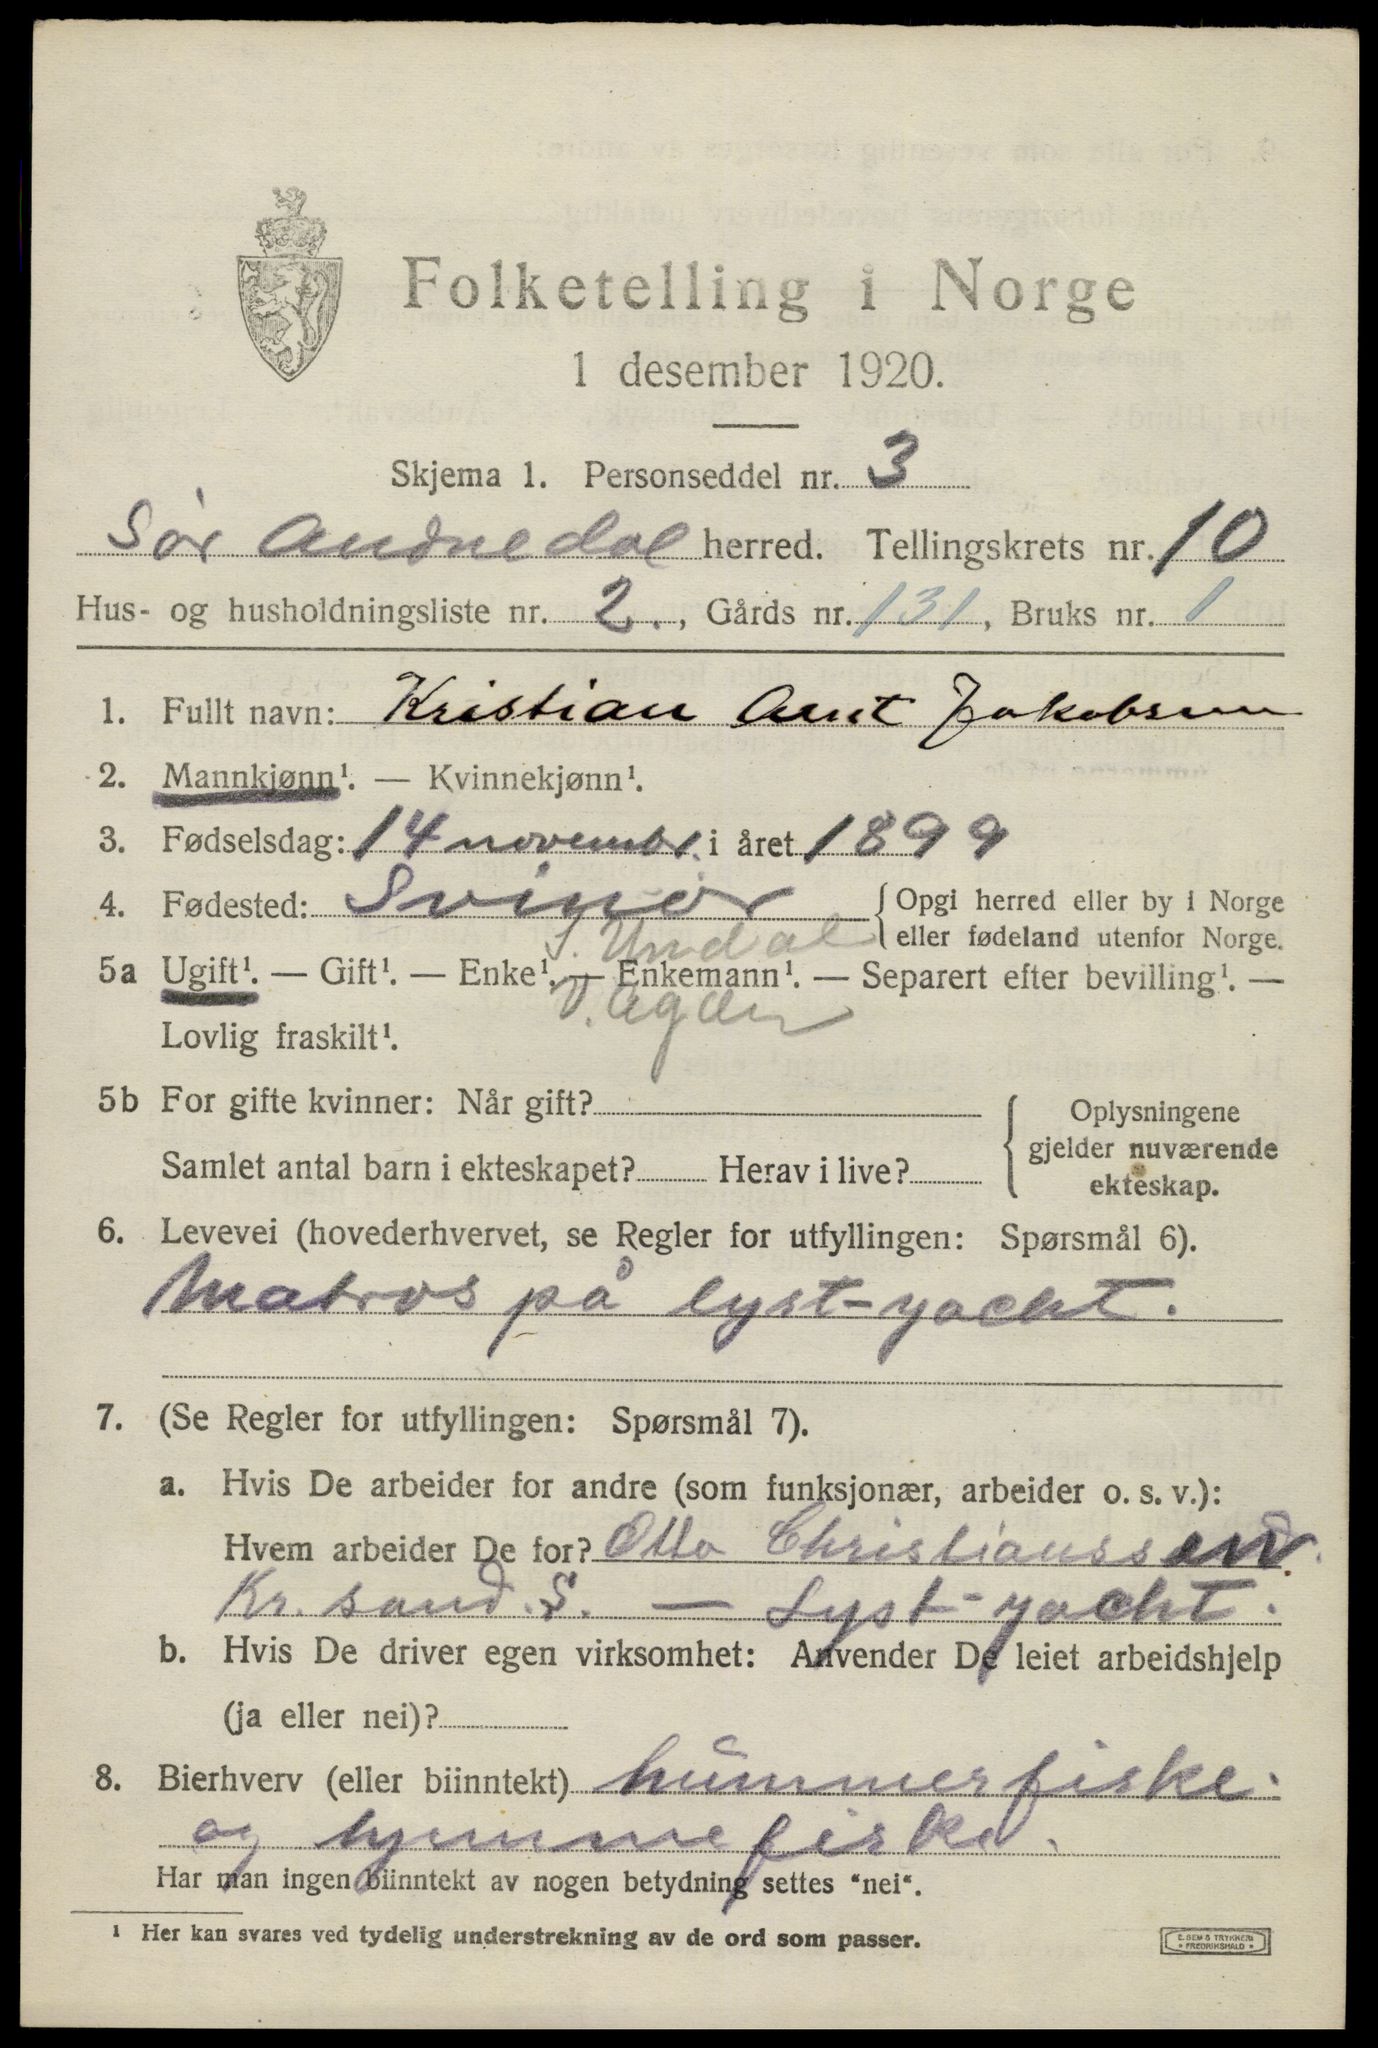 Folketelling i Norge
1 desember 1920.
Skjema 1. Personseddel nr. 3
Sør Audnedal herred. Tellingskrets nr. 10
Hus- og husholdningsliste nr. 2., Gårds nr. 131, Bruks nr. 1
1. Fullt navn: Kristian Arnt Jakobsen
2. Mannkjønn¹. — Kvinnekjønn¹.
3. Fødselsdag: 14 novembr. i året 1899
4. Fødested: Svinør { Opgi herred eller by i Norge
eller fødeland utenfor Norge.
S. Undal
5a Ugift¹. — Gift¹. — Enke¹. — Enkemann¹. — Separert efter bevilling¹. —
V. Agder
Lovlig fraskilt¹.
5b For gifte kvinner: Når gift? { Oplysningene
gjelder nuværende
Samlet antal barn i ekteskapet? Herav i live?
ekteskap.
6. Levevei (hovederhvervet, se Regler for utfyllingen: Spørsmål 6).
Matros på lyst-yacht.
7. (Se Regler for utfyllingen: Spørsmål 7).
a. Hvis De arbeider for andre (som funksjonær, arbeider o. s. v.):
Hvem arbeider De for? Otto Christianssen
Kr. sand. S. — Lyst-yacht.
b. Hvis De driver egen virksomhet: Anvender De leiet arbeidshjelp
(ja eller nei)?
8. Bierhverv (eller biinntekt) hummerfiske
og hjemmefiske.
Har man ingen biinntekt av nogen betydning settes "nei".
¹ Her kan svares ved tydelig understrekning av de ord som passer.
E. SEM'S TRYKKERI
FREDRIKSHALD